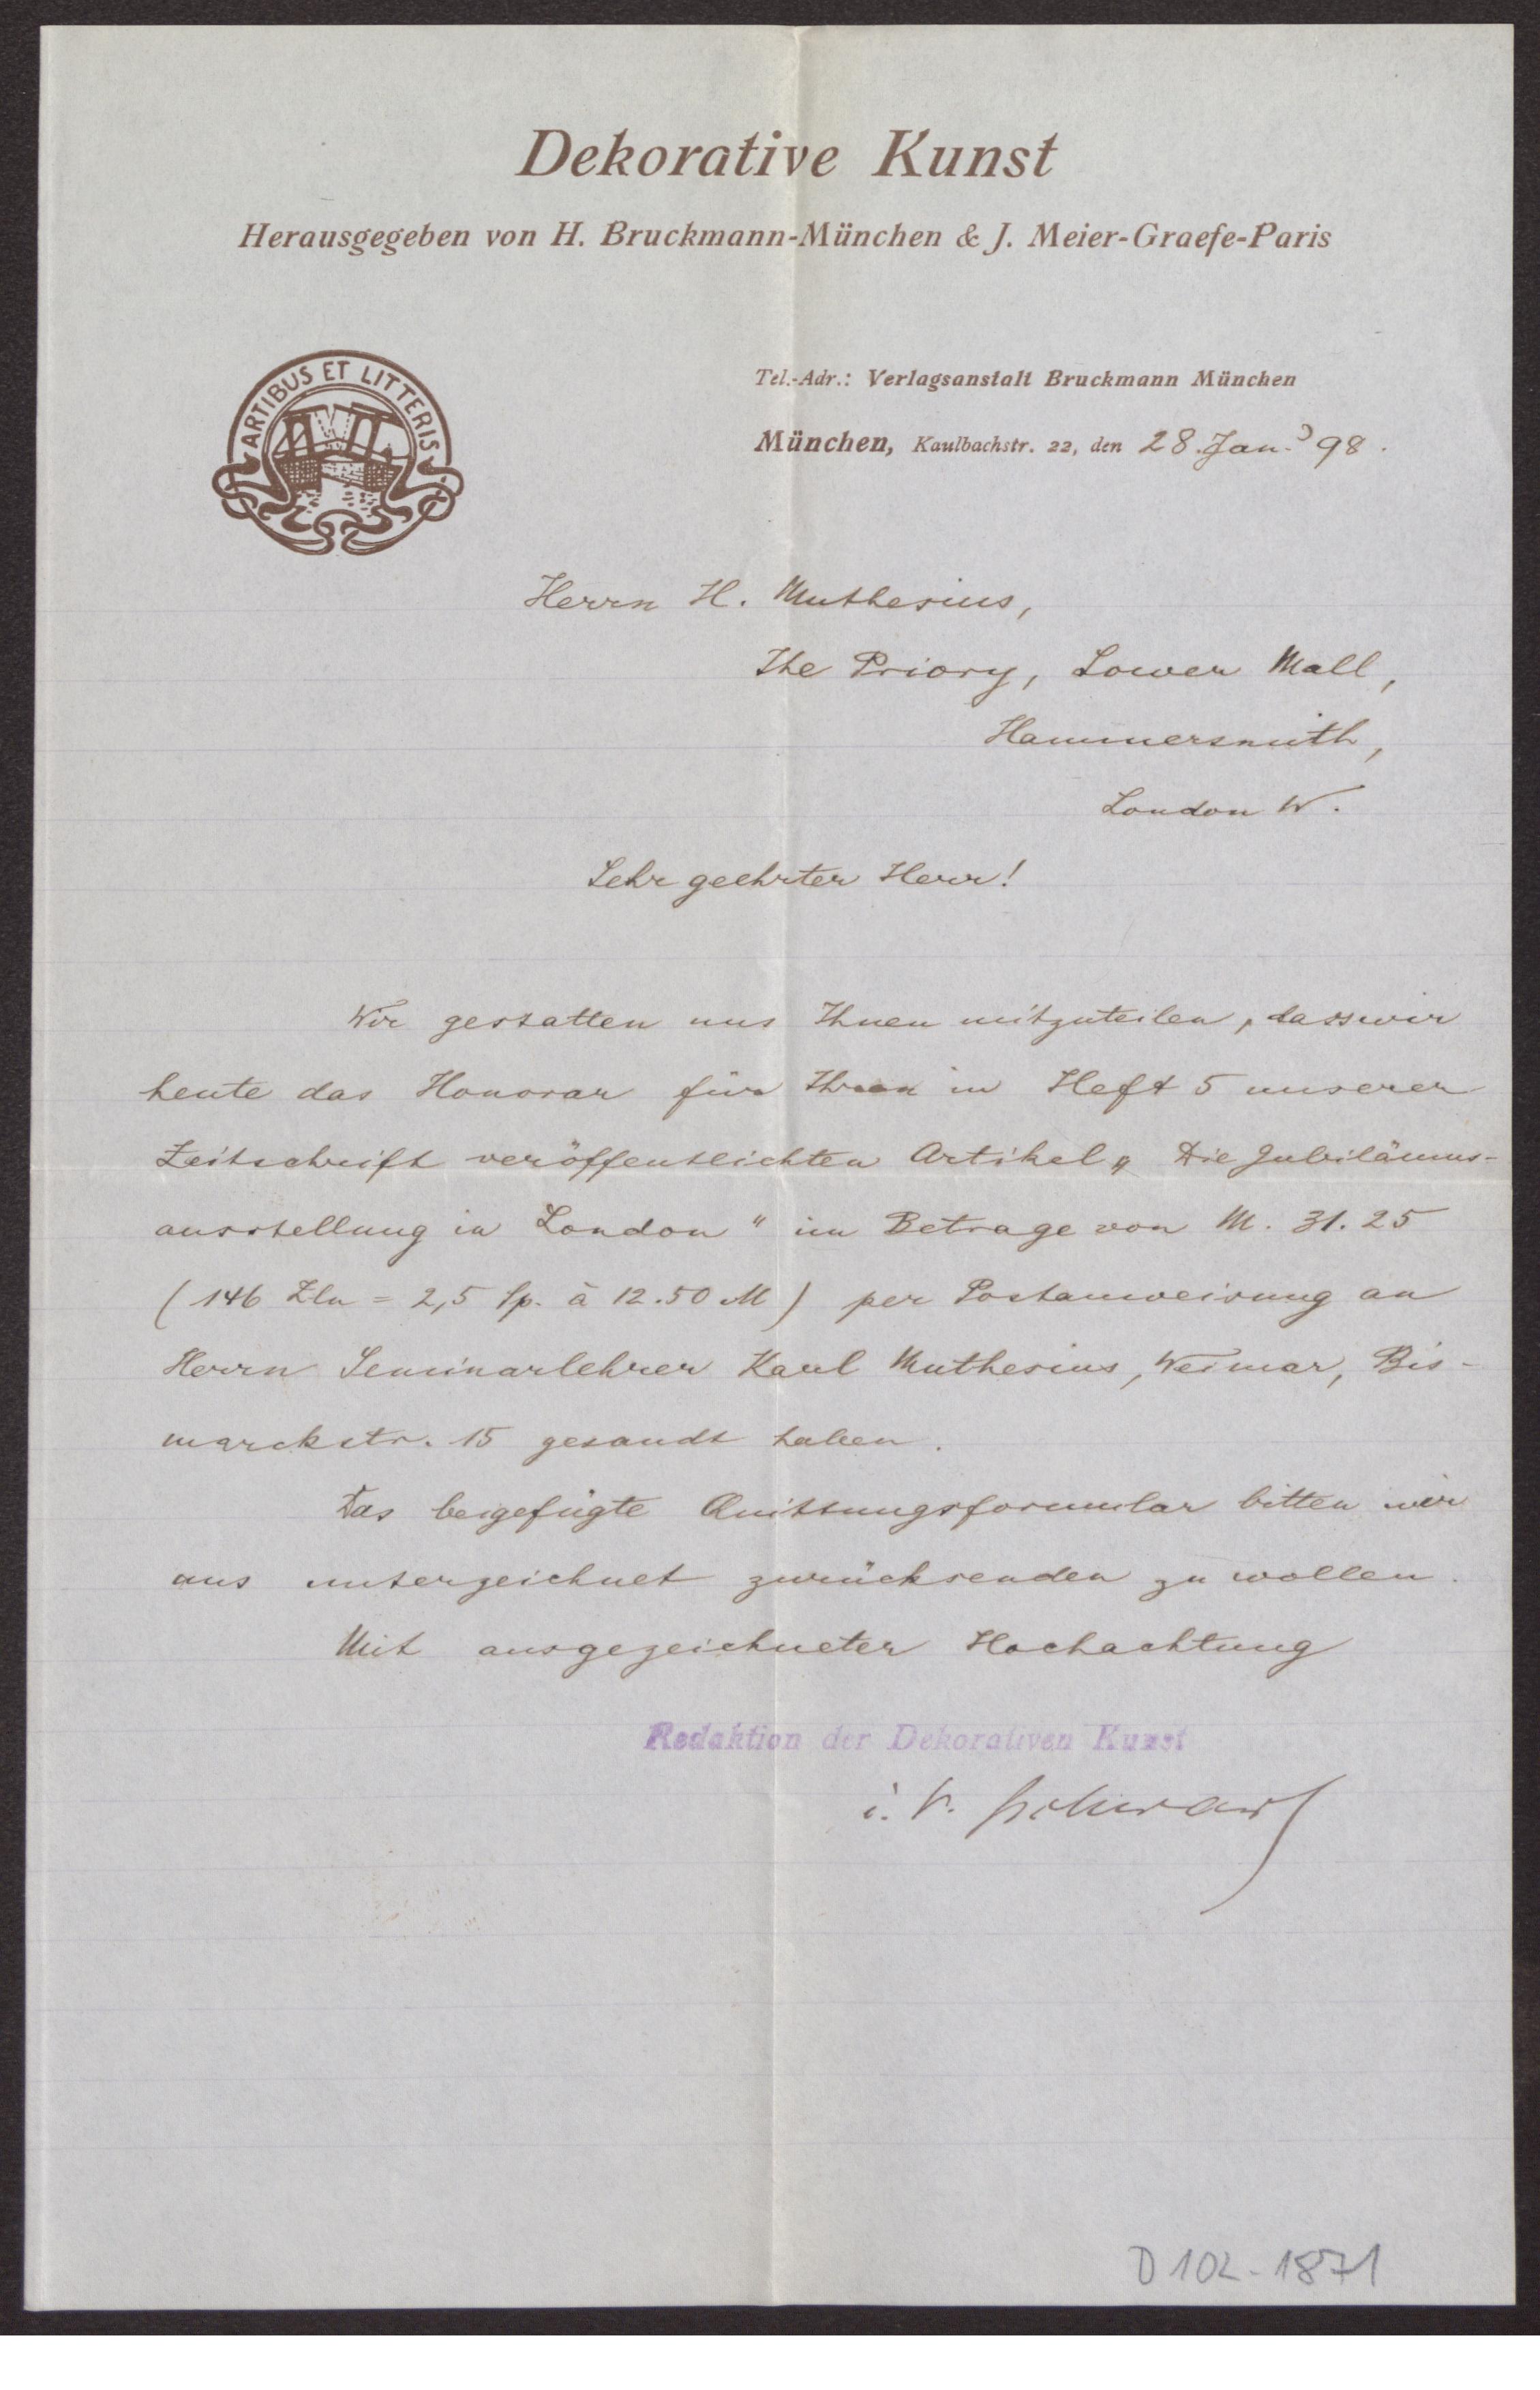 Dekorative Kunst
Herausgegeben von H. Bruckmann-München & J. Meier-Graefe-Paris
ARTIBUS ET LITTERIS
Tel.-Adr.: Verlagsanstalt Bruckmann München
München, Kaulbachstr. 22, den 28. Jan. 98.
Herrn H. Muthesius,
The Priory, Lower Mall,
Hammersmith,
London W.
Sehr geehrter Herr!
Wir gestatten uns Ihnen mitzuteilen, dass wir
heute das Honorar für Ihren in Heft 5 unserer
Zeitschrift veröffentlichten Artikel „Die Jubiläums-
ausstellung in London" im Betrage von M. 31.25
(146 Zln = 2,5 Sp. à 12.50 M) per Postanweisung an
Herrn Seminarlehrer Karl Muthesius, Weimar, Bis-
marckstr. 15 gesandt haben.
Das beigefügte Quittungsformular bitten wir
uns unterzeichnet zurücksenden zu wollen.
Mit ausgezeichneter Hochachtung
Redaktion der Dekorativen Kunst
i. V. Schwarz
D 102-1871